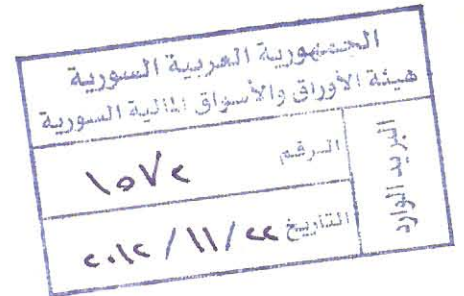 الجمهورية العربية السورية
هيئة الأوراق والأسواق المالية السورية
البريد الوارد
الرقم ١٥٧٢
التاريخ ٢٢ / ١١ / ٢٠١٢